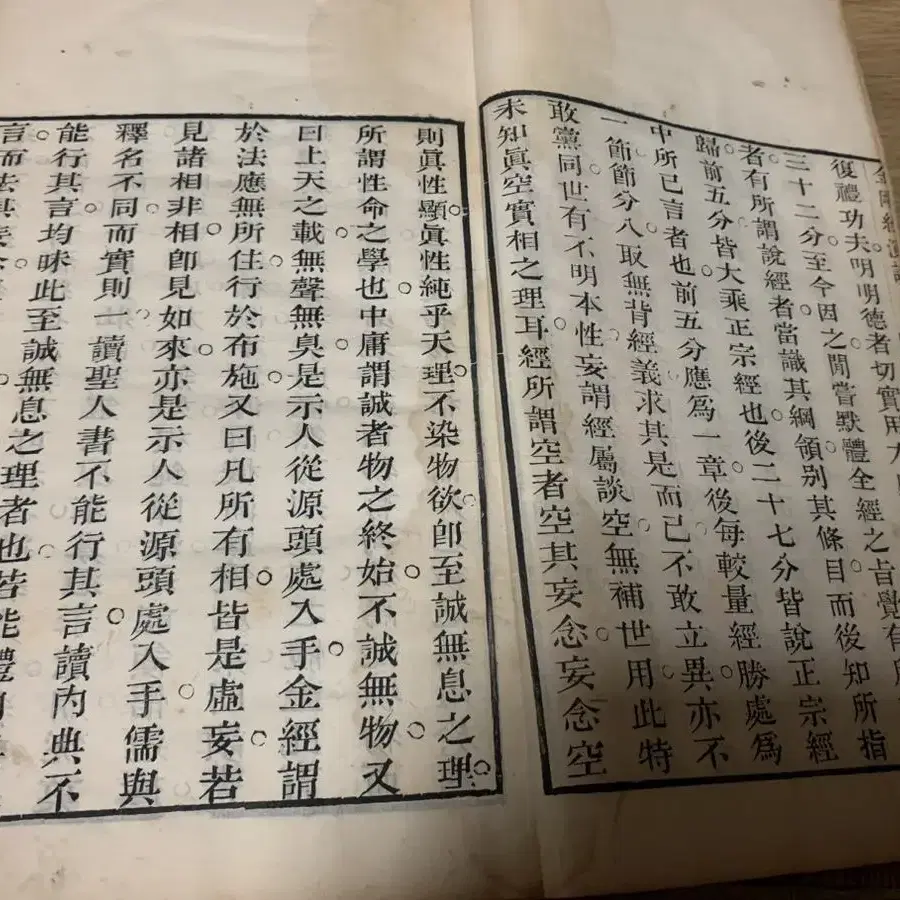 復禮功夫明明德者切實用
三十二分至今因之閒嘗默體全經之旨覺有所
者有所謂說經者當識其綱領別其條目而後知所指
歸前五分皆大乘正宗經也後二十七分皆說正宗經
中所已言者也前五分應爲一章後每較量經勝處爲
一節節分八取無背經義求其是而已不敢立異亦不
敢黨同世有不明本性妄謂經屬談空無補世用此特
未知眞空實相之理耳經所謂空者空其妄念妄念空
則眞性顯眞性純乎天理不染物欲卽至誠無息之理
所謂性命之學也中庸謂誠者物之終始不誠無物又
曰上天之載無聲無臭是示人從源頭處入手金經謂
於法應無所住行於布施又曰凡所有相皆是虛妄若
見諸相非相卽見如來亦是示人從源頭處入手儒與
釋名不同而實則一讀聖人書不能行其言讀內典不
能行其言均昧此至誠無息之理者也若能體
言而法